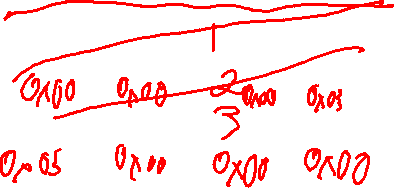 1
0x00 0x00 2 0x00 0x03
3
0x05 0x00 0x00 0x00